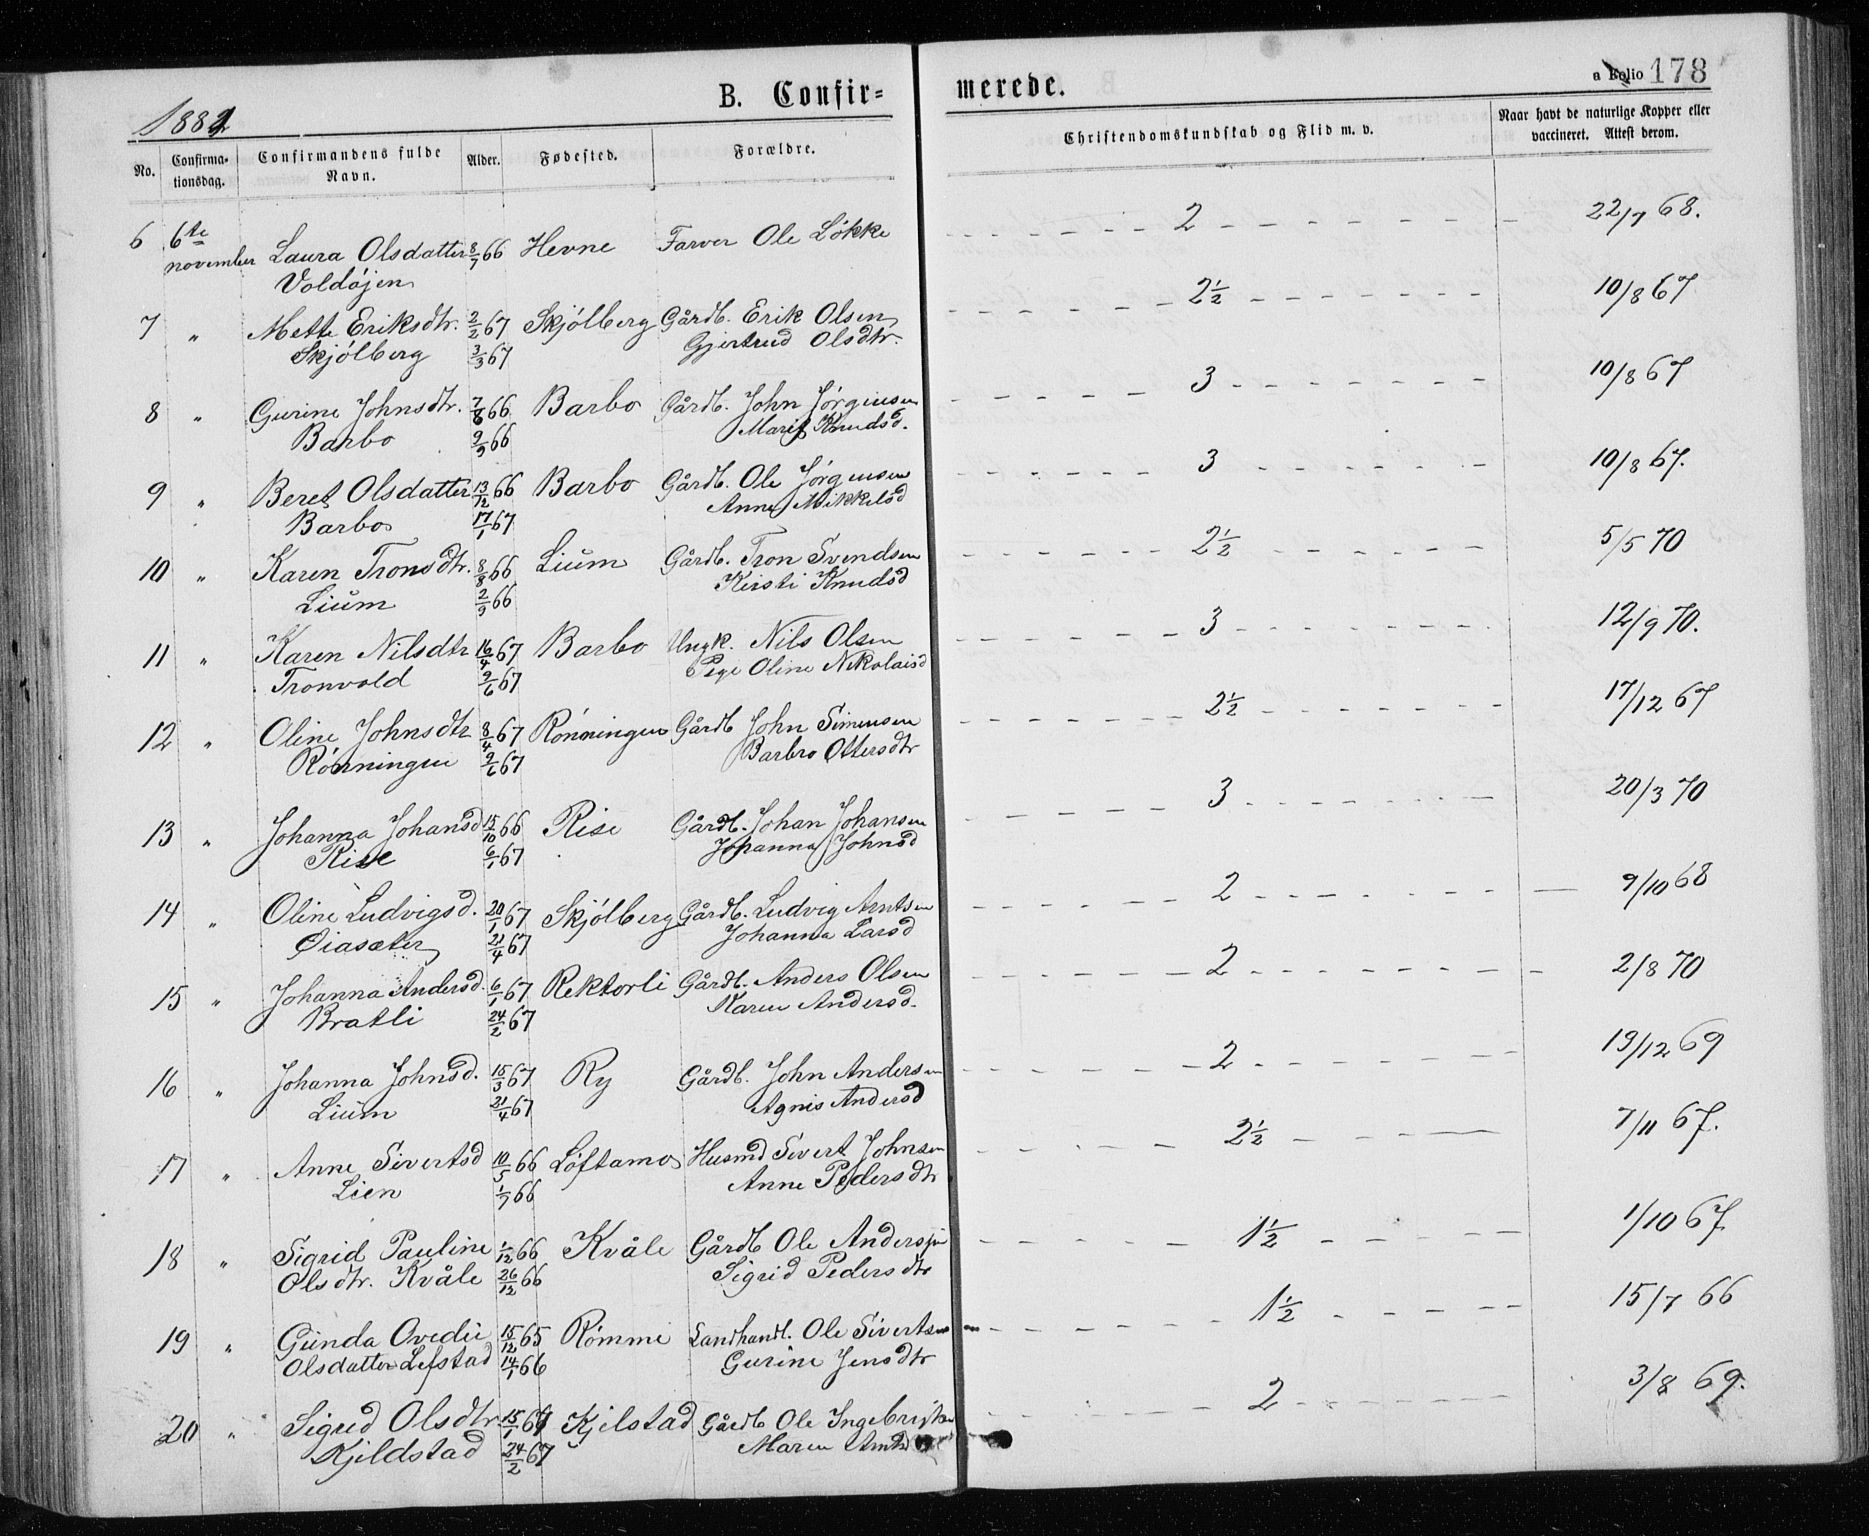 B. Confir= merede.
a Folio 178
1881
No.
Confirma-
tionsdag.
Confirmandens fulde
Navn.
Alder.
Fødested.
Forældre.
Christendomskundskab og Flid m. v.
Naar havt de naturlige Kopper eller
vaccineret. Attest derom.
6 6te november Laura Olsdatter 8/7 66 Hevne Farver Ole Løkke 2 22/7 68.
Voldøjen
7 " Mette Eriksdtr. 2/2 67 Skjølberg Gårdb. Erik Olsen 2½ 10/8 67
Skjølberg 3/3 67 Gjertrud Olsdtr.
8 " Gurine Johnsdtr. 7/8 66 Barbo Gårdb. John Jørgensen 3 10/8 67
Barbo 9/9 66 Marit Knudsd.
9 " Beret Olsdatter 13/12 66 Barbo Gårdb. Ole Jørgensen 3 10/8 67.
Barbo 17/1 67 Anne Mikkelsd
10 " Karen Tronsdtr. 8/8 66 Lium Gårdb. Tron Svendsen 2½ 5/5 70
Lium 2/9 66 Kirsti Knudsd
11 " Karen Nilsdtr 16/4 67 Barbo Ungk. Nils Olsen 3 12/9 70.
Tronvold 9/6 67 Pige Oline Nikolaisd
12 " Oline Johnsdtr 8/4 67 Rønningen Gårdb John Simensen 2½ 17/12 67
Rønningen 9/6 67 Barbro Ottersdtr
13 " Johanna Johansd 15/10 66 Rise Gårdb. Johan Johansen 3 20/3 70
Rise 6/1 67 Johanna Johnsd
14 " Oline Ludvigsd. 20/1 67 Skjølberg Gårdb. Ludvig Arntsen 2 9/10 68
Øiasæter 21/4 67 Johanna Larsd
15 " Johanna Andersd. 6/1 67 Rektorli Gårdb. Anders Olsen 2 2/8 70
Bratli 24/2 67 Karen Andersd.
16 " Johanna Johnsd. 15/3 67 Ry Gårdb. John Andersen 2 19/12 69
Lium 21/4 67 Agnis Andersd
17 " Anne Sivertsd 10/5 66 Løftamo Husmd Sivert Johnsen 2½ 7/11 67.
Lien 1/7 66 Anne Pedersdtr
18 " Sigrid Pauline 1/12 66 Kvåle Gårdb Ole Andersen 1½ 1/10 67
Olsdtr. Kvåle 26/12 66 Sigrid Pedersdtr
19 " Gunda Ovedie 15/12 65 Rømme Landhandl. Ole Sivertsen 1½ 15/7 66
Olsdatter Lefstad 14/1 66 Gurine Jensdtr
20 " Sigrid Olsdtr. 15/1 67 Kjelstad Gårdb Ole Ingebrigtsen 2 3/8 69.
Kjeldstad 24/2 67 Maren